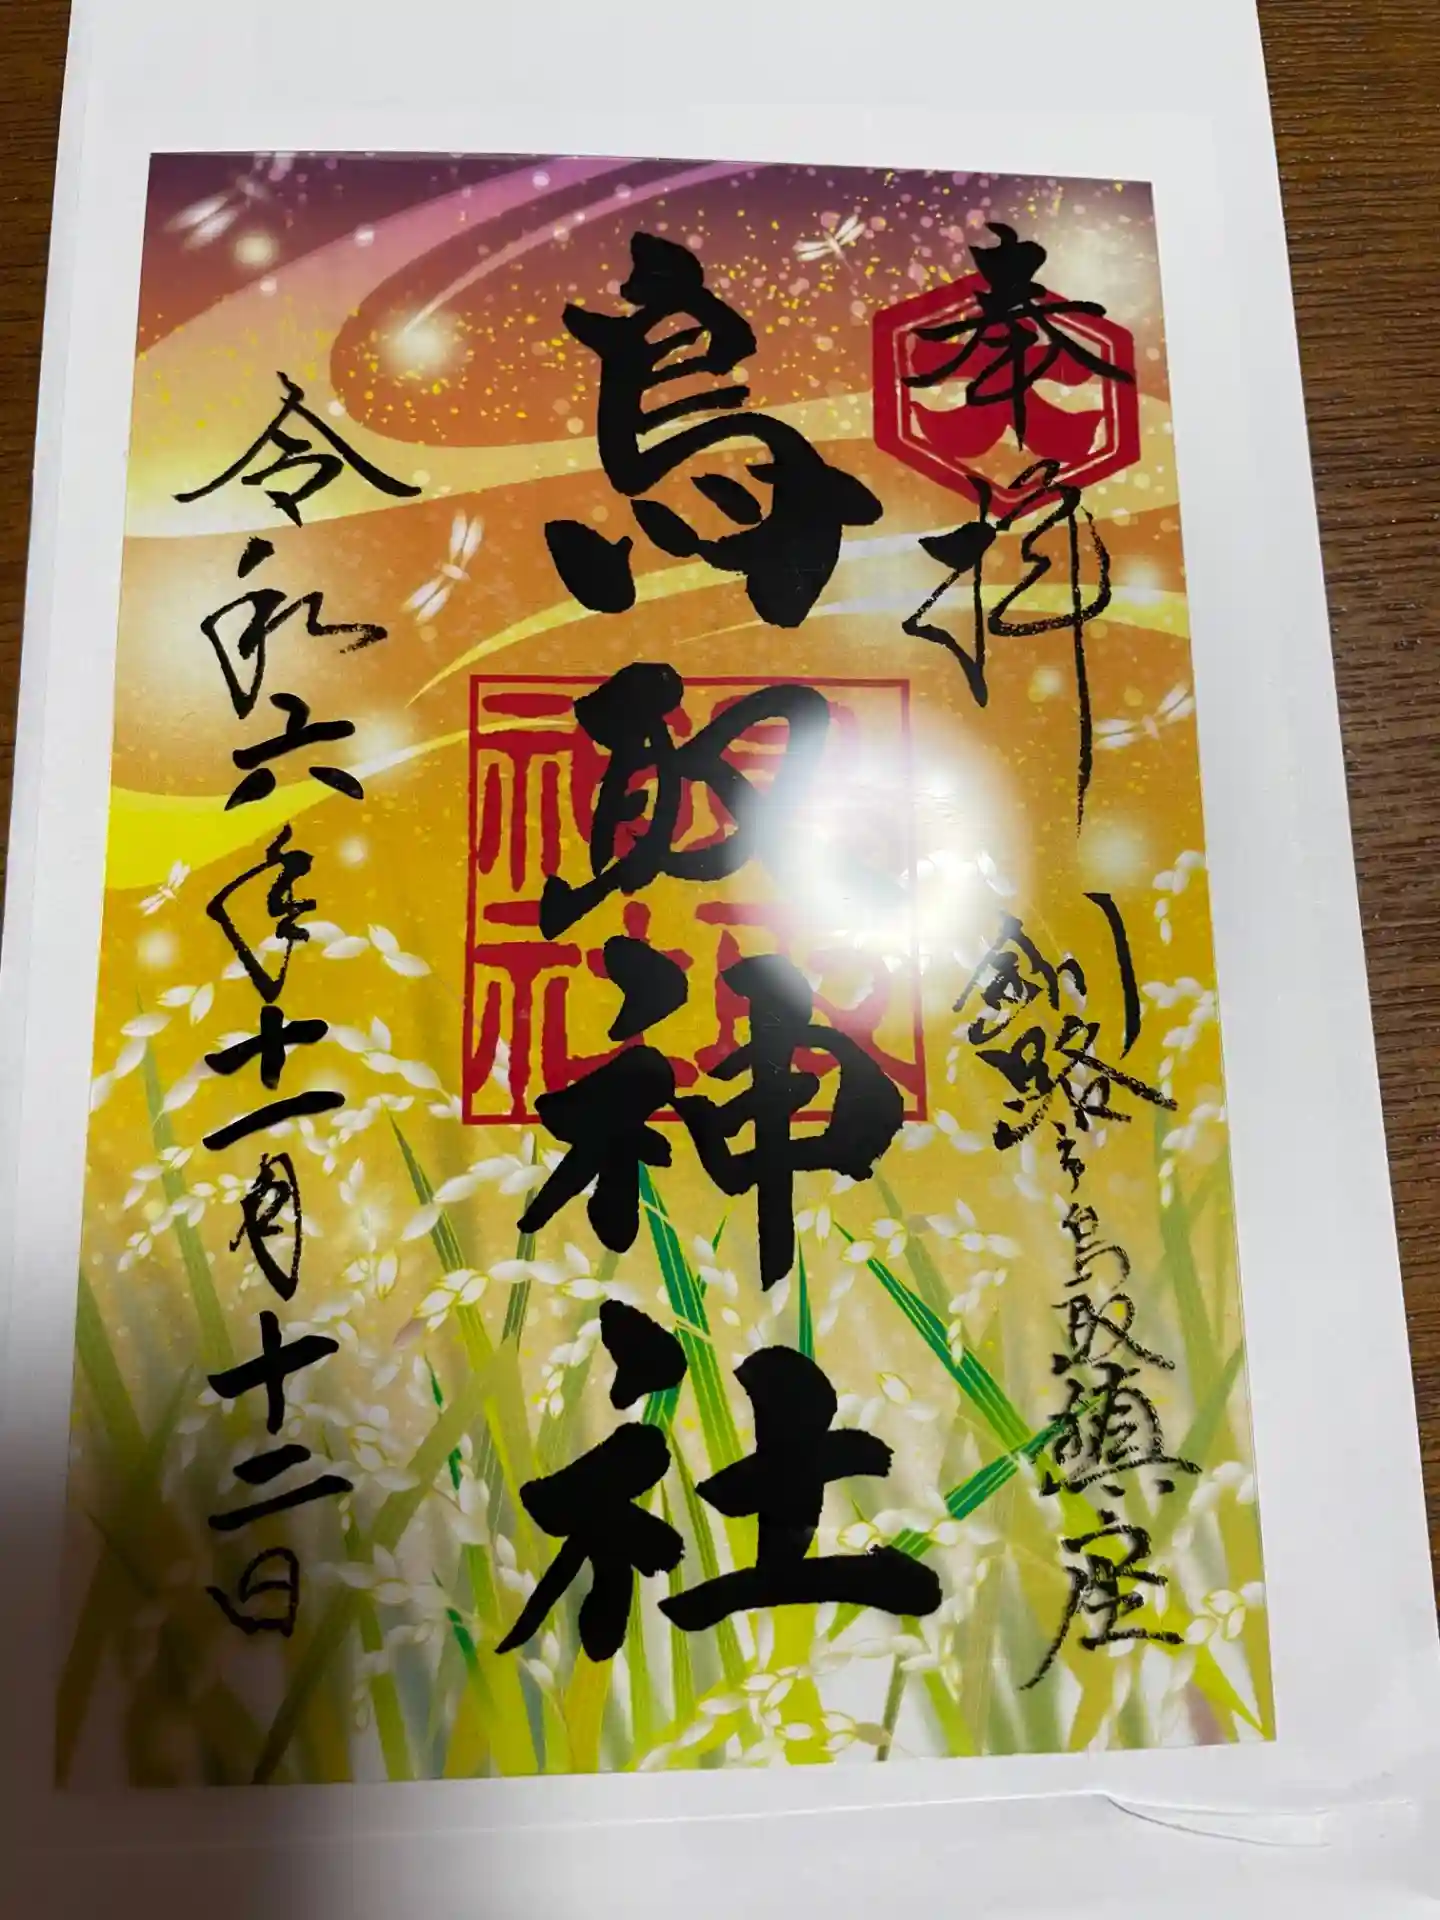 奉拝
釧路市鳥取鎮座
鳥取神社
鳥取神社
令和六年十一月十二日